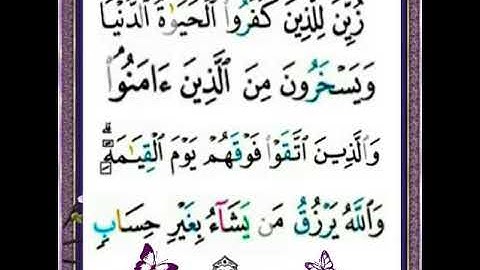 زُيِّنَ لِلَّذِينَ كَفَرُوا۟ ٱلْحَيَوٰةُ ٱلدُّنْيَا
وَيَسْخَرُونَ مِنَ ٱلَّذِينَ ءَامَنُوا۟ۘ
وَٱلَّذِينَ ٱتَّقَوْا۟ فَوْقَهُمْ يَوْمَ ٱلْقِيَـٰمَةِۗ
وَٱللَّهُ يَرْزُقُ مَن يَشَآءُ بِغَيْرِ حِسَابٍ